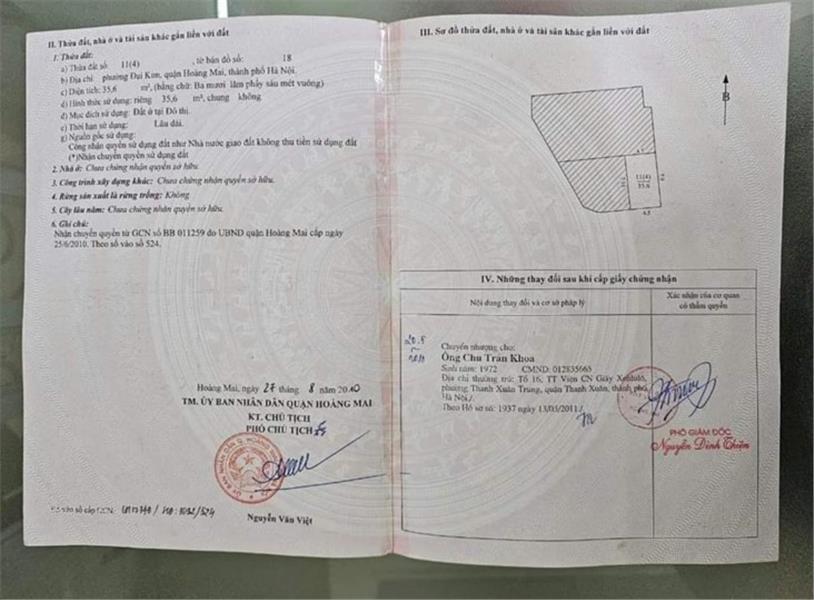 II. Thửa đất, nhà ở và tài sản khác gắn liền với đất
1. Thửa đất:
a) Thửa đất số: 11(4) , tờ bản đồ số: 18
b) Địa chỉ: phường Đại Kim, quận Hoàng Mai, thành phố Hà Nội.
c) Diện tích: 35,6 m², (bằng chữ: Ba mươi lăm phẩy sáu mét vuông)
d) Hình thức sử dụng: riêng 35,6 m², chung không
đ) Mục đích sử dụng: Đất ở tại Đô thị.
e) Thời hạn sử dụng: Lâu dài.
g) Nguồn gốc sử dụng:
Công nhận quyền sử dụng đất như Nhà nước giao đất không thu tiền sử dụng đất
(*)Nhận chuyển quyền sử dụng đất
2. Nhà ở: Chưa chứng nhận quyền sở hữu.
3. Công trình xây dựng khác: Chưa chứng nhận quyền sở hữu.
4. Rừng sản xuất là rừng trồng: Không
5. Cây lâu năm: Chưa chứng nhận quyền sở hữu.
6. Ghi chú:
Nhận chuyển quyền từ GCN số BB 011259 do UBND quận Hoàng Mai cấp ngày
25/6/2010. Theo số vào sổ 524.
Hoàng Mai, ngày 27 tháng 8 năm 2010
TM. ỦY BAN NHÂN DÂN QUẬN HOÀNG MAI
KT. CHỦ TỊCH
PHÓ CHỦ TỊCH
Nguyễn Văn Việt
Số vào sổ cấp GCN:
III. Sơ đồ thửa đất, nhà ở và tài sản khác gắn liền với đất
B
11(4)
35,6
4.5
IV. Những thay đổi sau khi cấp giấy chứng nhận
Nội dung thay đổi và cơ sở pháp lý
Xác nhận của cơ quan
có thẩm quyền
Chuyển nhượng cho:
Ông Chu Trần Khoa
Sinh năm: 1972 CMND: 012835665
Địa chỉ thường trú: Tổ 16, TT Viện CN Giấy
phường Thanh Xuân Trung, quận Thanh Xuân, thành phố
Hà Nội./.
Theo Hồ sơ số: 1937 ngày 13/05/2011./.
PHÓ GIÁM ĐỐC
Nguyễn Đình Thiện